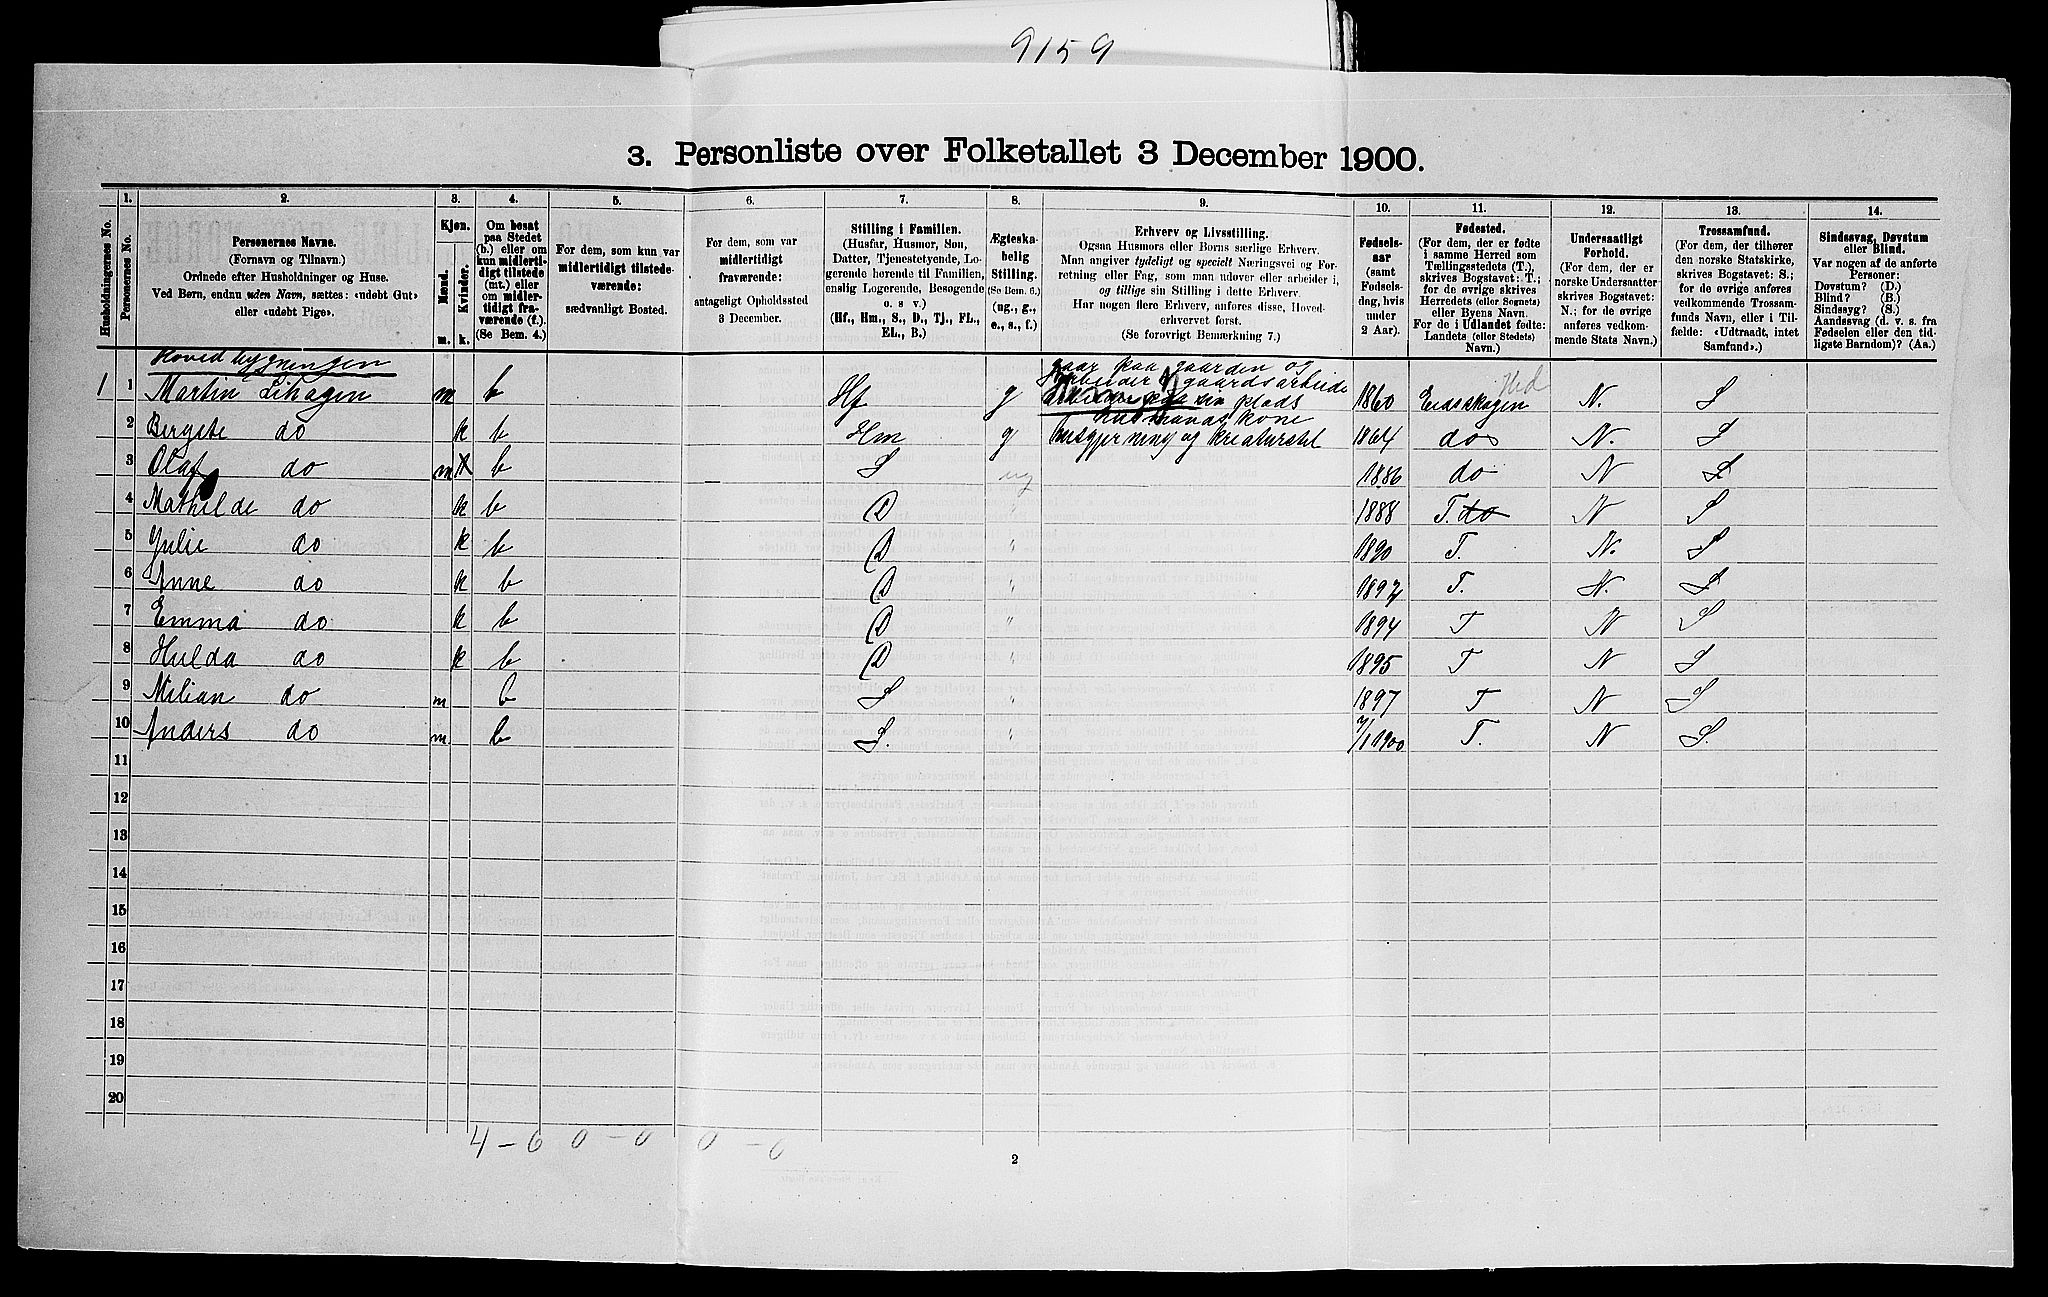 9159
3. Personliste over Folketallet 3 December 1900.
1. 2. 3. 4. 5. 6. 7. 8. 9. 10. 11. 12. 13. 14.
Husholdningernes No.
Personernes No.
Personernes Navne.
(Fornavn og Tilnavn.)
Ordnede efter Husholdninger og Huse.
Ved Børn, endnu uden Navn, sættes: «udøbt Gut»
eller «udøbt Pige».
Kjøn.
Mænd.
Kvinder.
m. k.
Om bosat
paa Stedet
(b.) eller om
kun midlerti-
digt tilstede
(mt.) eller
om midler-
tidigt fra-
værende (f.).
(Se Bem. 4.)
For dem, som kun var
midlertidigt tilstede-
værende:
sædvanligt Bosted.
For dem, som var
midlertidigt
fraværende:
antageligt Opholdssted
3 December.
Stilling i Familien.
(Husfar, Husmor, Søn,
Datter, Tjenestetyende, Lo-
gerende hørende til Familien,
enslig Logerende, Besøgende
o. s v.)
(Hf., Hm., S., D., Tj., FL.,
EL., B.)
Ægteska-
belig
Stilling.
(Se Bem. 6.)
(ug., g.,
e., s., f.)
Erhverv og Livsstilling.
Ogsaa Husmors eller Børns særlige Erhverv.
Man angiver tydeligt og specielt Næringsvei og For-
retning eller Fag, som man udøver eller arbeider i,
og tillige sin Stilling i dette Erhverv.
Har nogen flere Erhverv, anføres disse, Hoved-
erhvervet først.
(Se forøvrigt Bemærkning 7.)
Fødsels-
aar
(samt
Fødsels-
dag, hvis
under
2 Aar).
Fødested.
(For dem, der er fødte
i samme Herred som
Tællingsstedets (T.),
skrives Bogstavet: T.;
for de øvrige skrives
Herredets (eller Sognets)
eller Byens Navn.
For de i Udlandet fødte:
Landets (eller Stedets)
Navn.)
Undersaatligt
Forhold.
(For dem, der er
norske Undersaatter
skrives Bogstavet:
N.; for de øvrige
anføres vedkom-
mende Stats Navn.)
Trossamfund.
(For dem, der tilhører
den norske Statskirke,
skrives Bogstavet: S.;
for de øvrige anføres
vedkommende Trossam-
funds Navn, eller i Til-
fælde: «Udtraadt, intet
Samfund».)
Sindssvag, Døvstum
eller Blind.
Var nogen af de anførte
Personer:
Døvstum? (D.)
Blind? (B.)
Sindssyg? (S.)
Aandssvag (d. v. s. fra
Fødselen eller den tid-
ligste Barndom)? (Aa.)
Hovedbygningen
1 1 Martin Lihagen m b Hf g gaar paa gaarden og arbeider gaardsarbeide sin plads 1860 Eidsskogen Hed N. S
2 Bergite do k b Hm g husmands kone husgjerning og kreaturstel 1864 do N. S
3 Olaf do m b S ug 1886 do N S
4 Mathilde do k b D " 1888 T. do N S
5 Julie do k b D " 1890 T. N. S
6 Anne do k b D " 1892 T. N. S
7 Emma do k b D " 1894 T N S
8 Hulda do k b D " 1895 T N S
9 Milian do m b S " 1897 T N S
10 Anders do m b S. " 7/1 1900 T. N S.
11
12
13
14
15
16
17
18
19
20
4 - 6 0 - 0 0 - 0
2